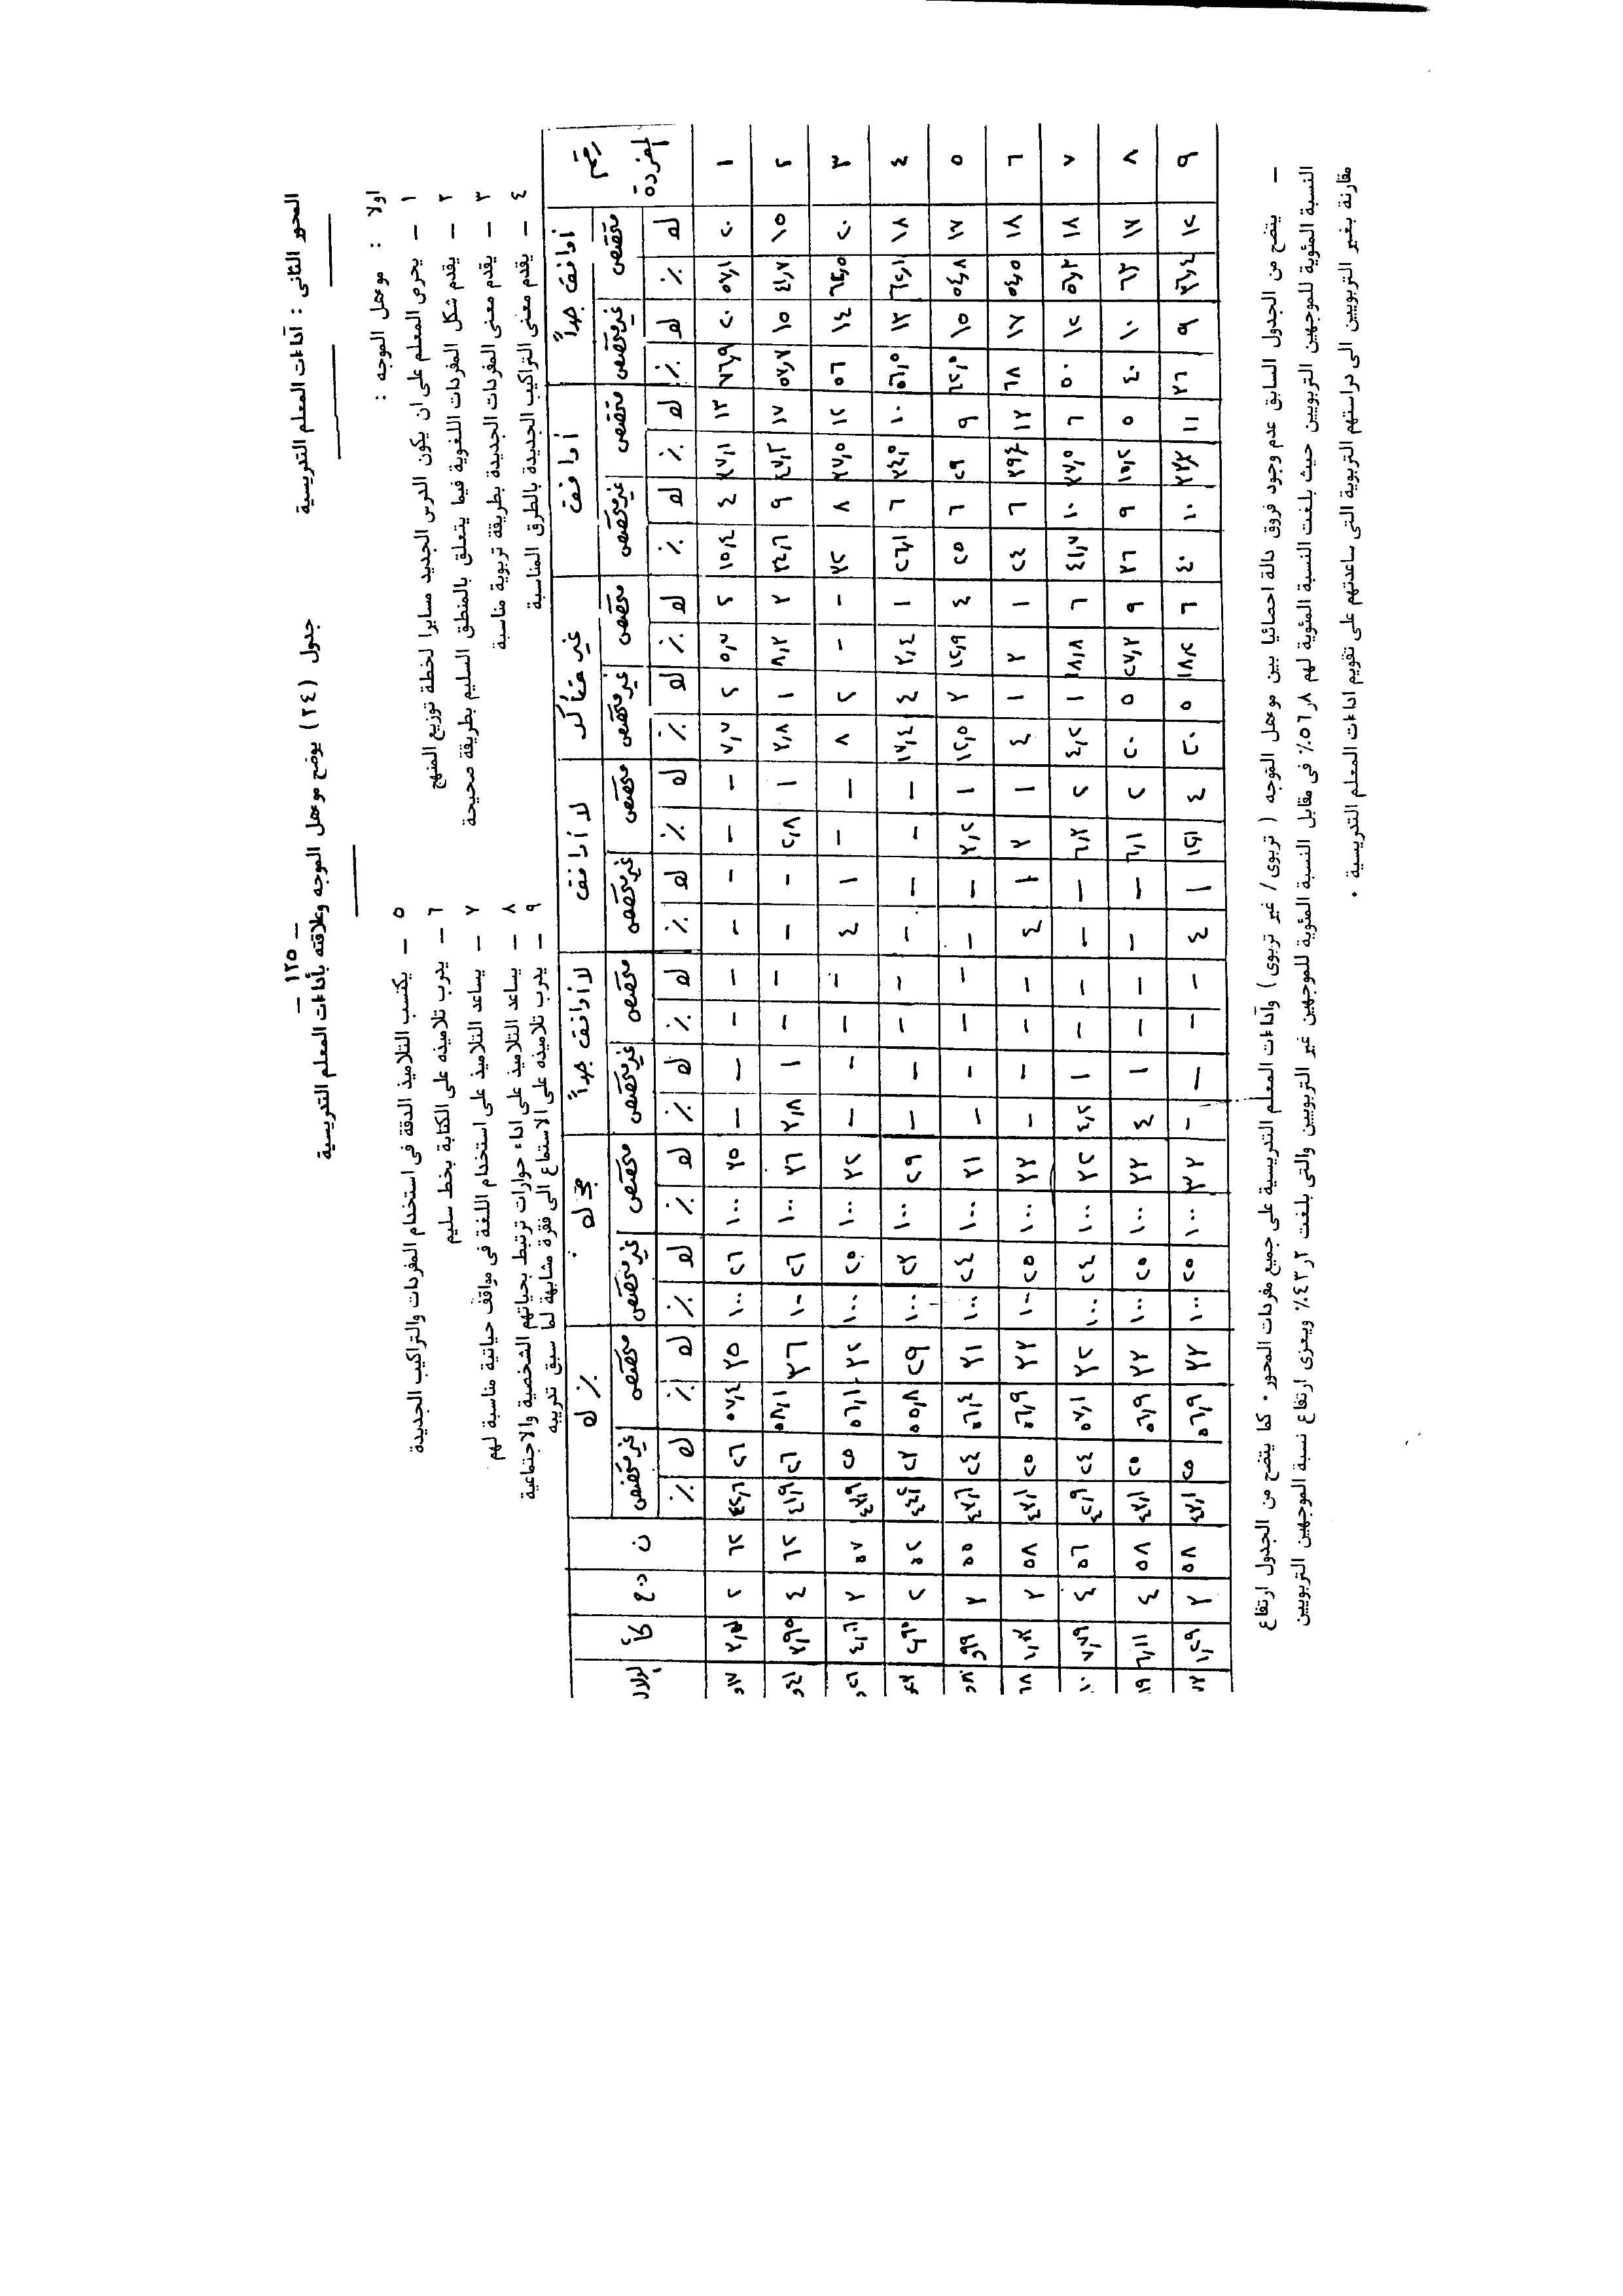 — ١٢٥ —
المحور الثانى : أداءات المعلم التدريسية
جدول (٢٤) يوضح موءهل الموجه وعلاقته بأداءات المعلم التدريسية
اولا : موءهل الموجه :
١ — يحرص المعلم على ان يكون الدرس الجديد مسايرا لخطة توزيع المنهج
٢ — يقدم شكل المفردات اللغوية فيما يتعلق بالمنطق السليم بطريقة صحيحة
٣ — يقدم معنى المفردات الجديدة بطريقة تربوية مناسبة
٤ — يقدم معنى التراكيب الجديدة بالطرق المناسبة
٥ — يكتسب التلاميذ الدقة فى استخدام المفردات والتراكيب الجديدة
٦ — يدرب تلاميذه على الكتابة بخط سليم
٧ — يساعد التلاميذ على استخدام اللغة فى مواقف حياتية مناسبة لهم
٨ — يساعد التلاميذ على اداء حوارات ترتبط بحياتهم الشخصية والاجتماعية
٩ — يدرب تلاميذه على الاستماع الى فقرة مشابهة لما سبق تدريبه
رقم المفردة أوافق جداً أوافق غير متأكد لا أوافق لا أوافق جداً مج ك ٪ ك ن د.ح كا٢
متخصص غير متخصص متخصص غير متخصص متخصص غير متخصص متخصص غير متخصص متخصص غير متخصص متخصص غير متخصص متخصص غير متخصص
ك ٪ ك ٪ ك ٪ ك ٪ ك ٪ ك ٪ ك ٪ ك ٪ ك ٪ ك ٪ ك ٪ ك ٪ ك ٪ ك ٪
١ ٢٠ ٥٧,١ ٢٠ ٧٦,٩ ١٣ ٣٧,١ ٤ ١٥,٤ ٢ ٥,٧ ٢ ٧,٧ — — — — — — — — ٣٥ ١٠٠ ٢٦ ١٠٠ ٣٥ ٥٧,٤ ٢٦ ٤٢,٦ ٦٢ ٢
٢ ١٥ ٤١,٧ ١٥ ٥٧,٧ ١٧ ٤٧,٢ ٩ ٣٤,٦ ٣ ٨,٣ ١ ٣,٨ ١ ٢,٨ — — — — ١ ٣,٨ ٣٦ ١٠٠ ٢٦ ١٠٠ ٣٦ ٥٨,١ ٢٦ ٤١,٩ ٦٢ ٤ ٣,٩٥
٣ ٢٠ ٦٢,٥ ١٤ ٥٦ ١٢ ٣٧,٥ ٨ ٣٢ — — ٢ ٨ — — ١ ٤ — — — — ٣٢ ١٠٠ ٢٥ ١٠٠ ٣٢ ٥٦,١ ٢٥ ٤٣,٩ ٥٧ ٣ ٤,٠٦
٤ ١٨ ٦٢,١ ١٣ ٥٦,٥ ١٠ ٣٤,٥ ٦ ٢٦,١ ١ ٣,٤ ٤ ١٧,٤ — — — — — — — — ٢٩ ١٠٠ ٢٣ ١٠٠ ٢٩ ٥٥,٨ ٢٣ ٤٤,٢ ٥٢ ٢
٥ ١٧ ٥٤,٨ ١٥ ٦٢,٥ ٩ ٢٩ ٦ ٢٥ ٤ ١٢,٩ ٣ ١٢,٥ ١ ٣,٢ — — — — — — ٣١ ١٠٠ ٢٤ ١٠٠ ٣١ ٥٦,٤ ٢٤ ٤٣,٦ ٥٥ ٣
٦ ١٨ ٥٤,٥ ١٧ ٦٨ ١٣ ٣٩,٤ ٦ ٢٤ ١ ٣ ١ ٤ ١ ٣ ١ ٤ — — — — ٣٣ ١٠٠ ٢٥ ١٠٠ ٣٣ ٥٦,٩ ٢٥ ٤٣,١ ٥٨ ٣
٧ ١٨ ٥٦,٣ ١٢ ٥٠ ٦ ١٠ ٤١,٧ ٦ ١٨,٨ ١ ٤,٢ ٢ ٦,٣ — — — — ١ ٤,٢ ٣٢ ١٠٠ ٢٤ ١٠٠ ٣٢ ٥٧,١ ٢٤ ٤٢,٩ ٥٦ ٤ ٧,٧٩
٨ ١٧ ١٠ ٤٠ ٥ ١٥,٢ ٩ ٣٦ ٩ ٢٧,٣ ٥ ٢٠ ٢ ٦,١ — — — — ١ ٤ ٣٣ ١٠٠ ٢٥ ١٠٠ ٣٣ ٥٦,٩ ٢٥ ٤٣,١ ٥٨ ٤ ٦,١١
٩ ١٢ ٣٦,٤ ٩ ٣٦ ١١ ٣٣,٣ ١٠ ٤٠ ٦ ١٨,٢ ٥ ٢٠ ٤ ١٢,١ ١ ٤ — — — — ٣٣ ١٠٠ ٢٥ ١٠٠ ٣٣ ٥٦,٩ ٢٥ ٤٣,١ ٥٨ ٣ ١,٢٩
— يتضح من الجدول السابق عدم وجود فروق دالة احصائيا بين موءهل التوجه ( تربوى / غير تربوى ) وأداءات المعلم التدريسية على جميع مفردات المحور ٠ كما يتضح من الجدول ارتفاع
النسبة المئوية للموجهين التربويين حيث بلغت النسبة المئوية لهم ٥٦٫٨٪ فى مقابل النسبة المئوية للموجهين غير التربويين والتى بلغت ٤٣٫٢٪ ويعزى ارتفاع نسبة الموجهين التربويين
مقارنة بغير التربويين الى دراستهم التربوية التى ساعدتهم على تقويم اداءات المعلم التدريسية ٠